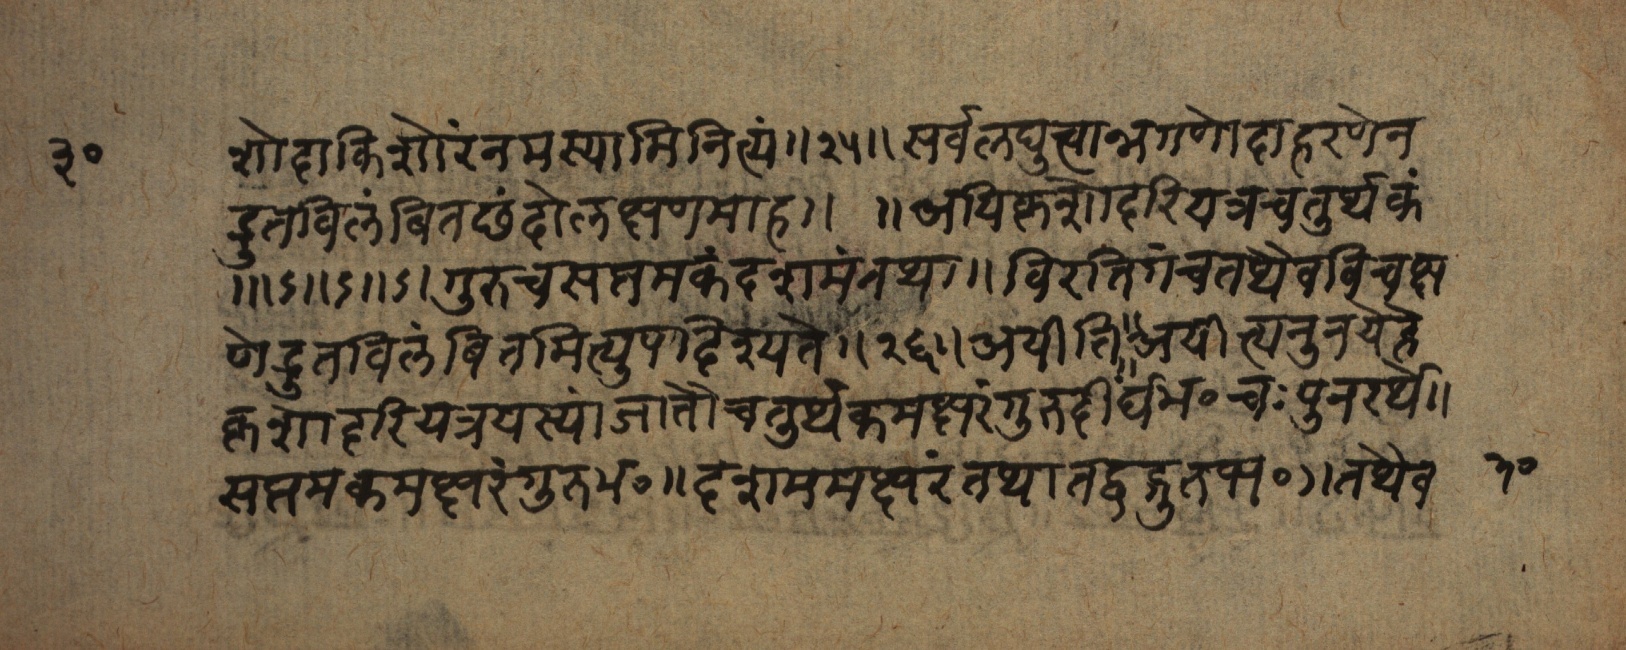 ३० शोदाकिशोरंनमस्यामिनित्यं॥२५॥सर्वलघुत्वान्भगणोदाहरणेन
द्रुतविलंबितछंदोलक्षणमाह॥ ॥अयिकृशोदरियत्रचतुर्थकं
॥।ऽ॥ऽ॥ऽ।गुरुचसप्तमकंदशमंतथा॥विरतिगंचतथैवविचक्ष
णेद्रुतविलंबितमित्युपदिश्यते॥२६॥अयीति॥अयीत्यनुनयेहे
कृशोदरियत्रयस्यांजातौचतुर्थकमक्षरंगुरुदीर्घंभ॰चःपुनरर्थे॥
सप्तमकमक्षरंगुरुभ॰॥दशममक्षरंतथातद्वद्गुरुभ॰॥तथैव ३०